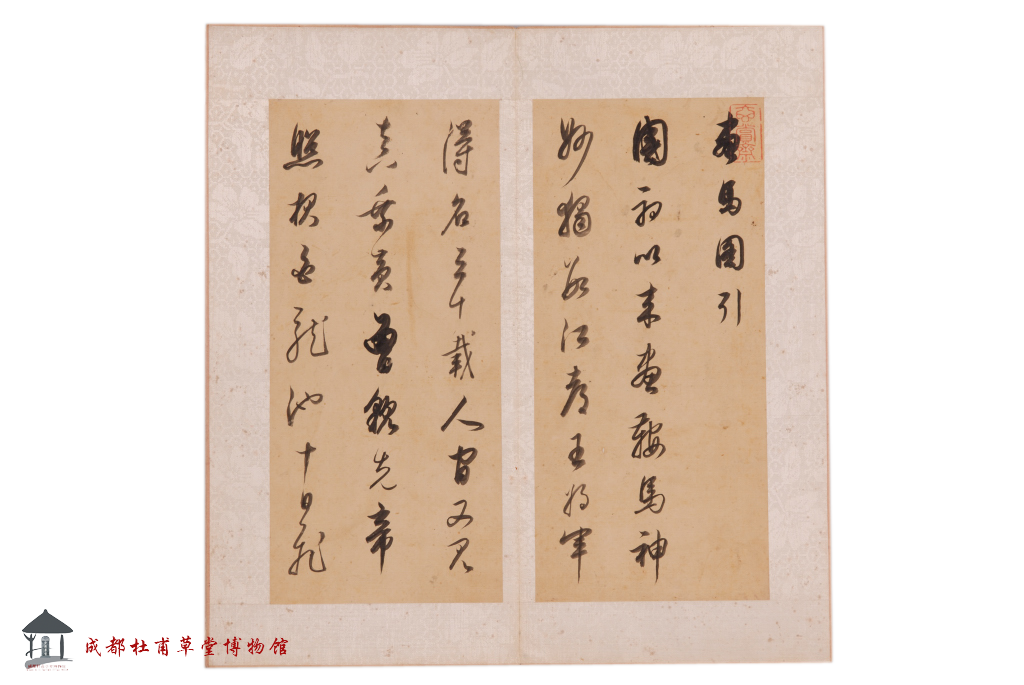 畫馬圖引
國初以來畫鞍馬神
妙獨數江都王將軍
得名三十載人間又見
真乘黃曾貌先帝
照夜白龍池十日飛
成都杜甫草堂博物馆